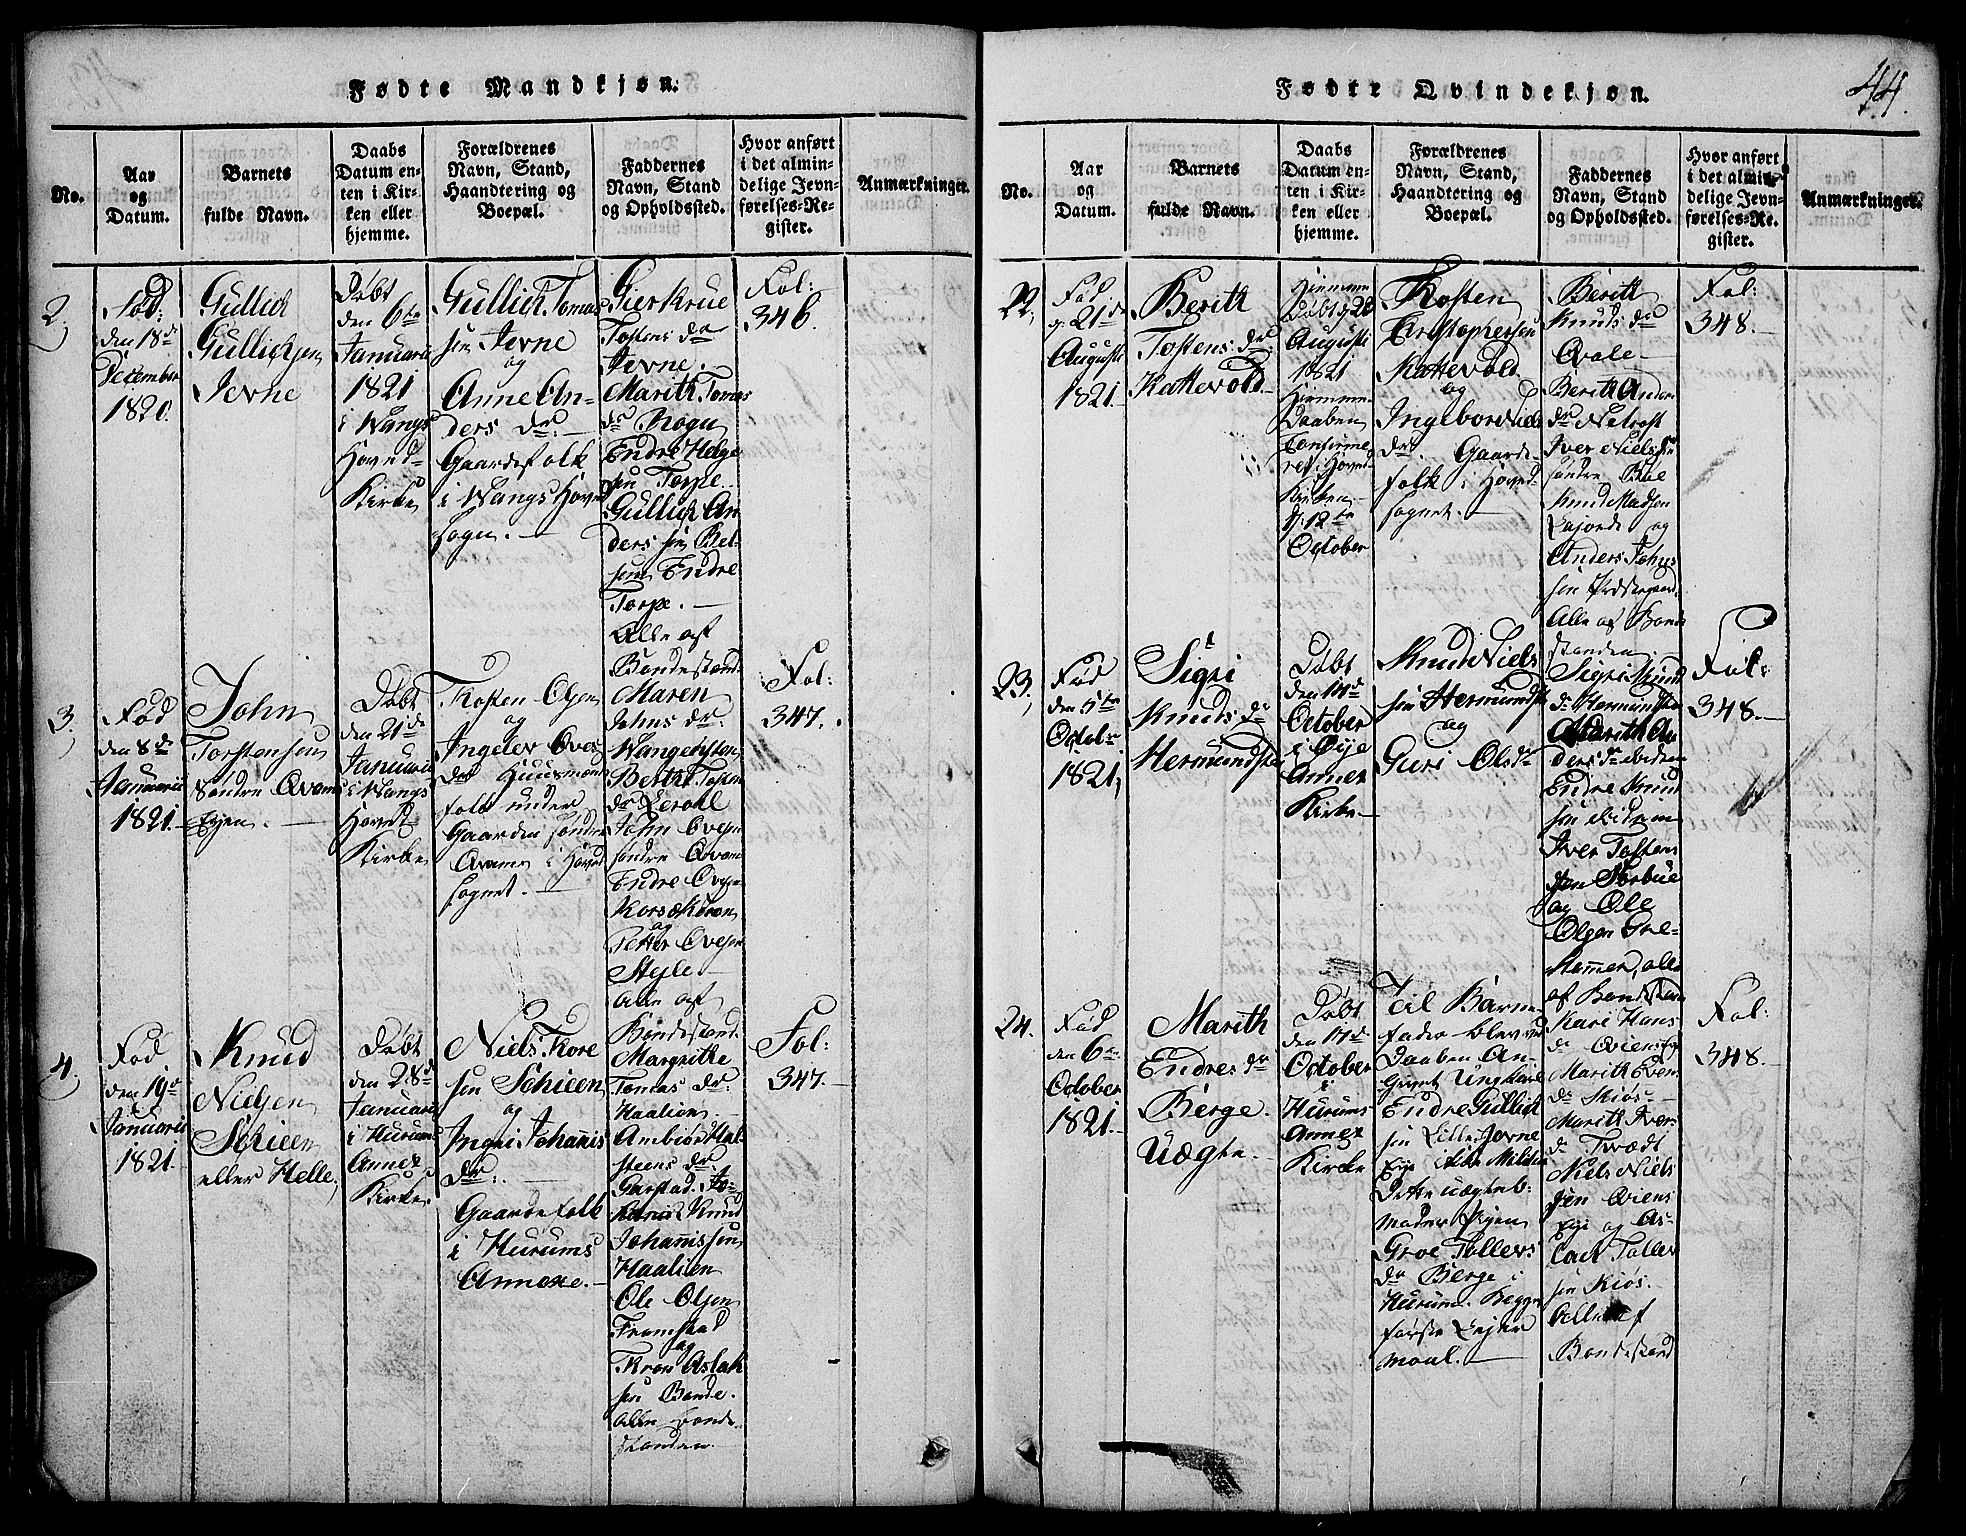 Fødte Mandkjøn.
No.
Aar
og
Datum.
Barnets
fulde Navn.
Daabs
Datum en-
ten i Kir-
ken eller
hjemme.
Forældrenes
Navn, Stand,
Haandtering og
Boepæl.
Faddernes
Navn, Stand
og Opholdssted.
Hvor anført
i det almin-
delige Jevn-
førelses-Re-
gister.
Anmærkninger.
2.
Fød:
den 18de
December
1820.
Gullich
Gullichsen
Jevne
Døbt
den 6te
Januarii
1821
i Wangs
Hoved-
Kirke
Gullich Tomas
sen Jevne
og
Anne An-
ders dr.
Gaardefolk
i Wangs Hoved
sogn.
Gierkrue
Tostens dr
Jevne.
Marith Tomas
dr Rogn
Endre Helge
sen Torpe.
Gullich An
ders sen
Endre
Torpe.
Alle af
Bondestand.
Fol:
346.
3.
Fød
den 8de
Januarii
1821.
John
Torstensen
Søndre Qvams
Eyen.
Døbt
den 21de
Januarii
i Wangs
Hoved-
Kirke
Tosten Olsen
og
Ingelev Oves
dr Huusmands
folk under
Gaarden søndre
Qvame i Hoved
sognet.
Maren
Johns dr.
Tosten
dr Lerohl
John Ovesen
søndre Qvam
Endre Ovesen
og
Petter Ovesen
Alle af
Bondestand.
Fol:
347.
4.
Fød
den 19de
Januarii
1821.
Knud
Nielsen
Schieen
eller Helle,
Døbt
den 28de
Januarii
i Hurums
Annex
Kirke.
Niels Tore
sen Schieen
og
Ingri Johannis
dr.
Gaardefolk
i Hurums
Annexe.
Margrithe
Tomas dr.
Haalien.
Ambiør Hal-
steens dr.
Garstad.
Knud
Johannissen
Haalien
Ole Olsen
Tremstad
og
Aslak
sen Bonde.
alle Bonde
standen.
Fol:
347.
Fødte Qvindekjøn.
44.
No.
Aar
og
Datum.
Barnets
fulde Navn.
Daabs
Datum en-
ten i Kir-
ken eller
hjemme.
Forældrenes
Navn, Stand,
Haandtering og
Boepæl.
Faddernes
Navn, Stand
og Opholdssted.
Hvor anført
i det almin-
delige Jevn-
førelses-Re-
gister.
Anmærkninger.
22.
Fød
d. 21de
Augusti
1821.
Berith
Tostens dr
Kattevold
Hiemme
Døbt d. 28
Augusti
1821
Hiemme-
Daaben
Confirme
ret i Hoved-
Kirken
d. 12te
October
Tosten
Christophersen
Kattevold
og
Ingebor Niels
dr. Gaarde-
folk i Hoved-
sognet.
Berith
Knuds dr
Qvale
Berith Anders
dr
Iver Nielssen
søndre
Knud Madsen
og
Anders Johns
sen
Alle af Bonde
standen.
Fol:
348.
23.
Fød
den 5te
Octobr
1821,
Sigri
Knuds dr
Hermundstad
Døbt
den 14de
October
i Øye
Annex
Kirke
Knud Niels
sen Hermundsta
og
Guri Olsdr
Sigri Knud
dr Hermundstad
Marith An
ders dr
Endre Knud
sen
Iver Tosten
sen
og Ole
Olsen
alle
af Bondestand
Fol:
348.
24.
Fød
den 6te
October
1821.
Marith
Endres dr
Berge.
Uægte.
Døbt
den 14de
October
i
Hurums
Annex
Kirke
Til Barne-
fader blev ved
Daaben An-
givet Ungkarl
Endre Gullich
sen Lille Jevne
Dette uægteb.
moder Pigen
Groe Tollefs
dr Berge i
Hurum. Begge
første Lejer
maal.
Kari Hans
dr Qviens
Marith Even
dr Kiøs
Marith Ivers
dr Tvedt
Niels Niels
sen Qviens
og As-
lach Tollef
sen Kiøs.
Alle af
Bondestand
Fol:
348.